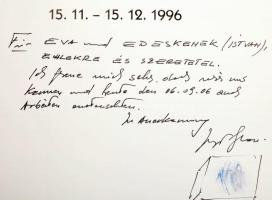 15.11. – 15.12. 1996
Für EVA und EDESKENEK (ISTVÁN),
EMLÉKRE ÉS SZERETETTEL.
Ich freue mich sehr, dass wir uns
kennen und heute den 06.09.06 auch
Arbeiten austauschten.
In Anerkennung